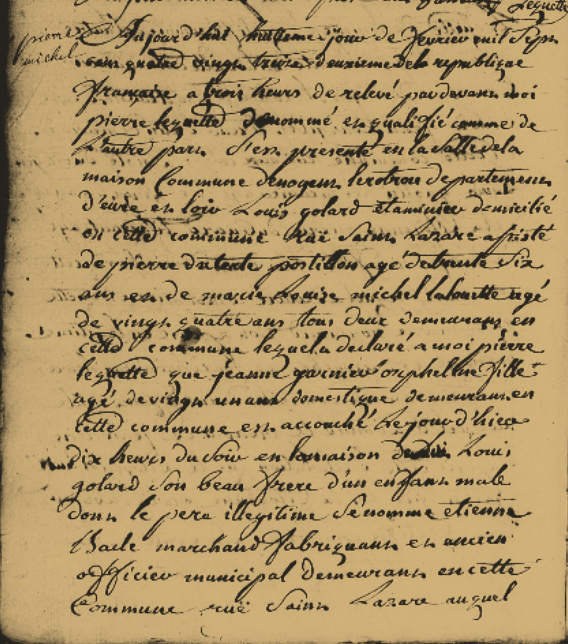 pierre
michel
Aujourd'hui huitieme jour de fevrier mil sept
cent quatre vingt treize deuxieme de la republique
française a trois heurs de relevé par devant moi
pierre lequette denommé et qualifié comme de
l'autre part s'est presenté en la salle de la
maison Commune de nogent le rotrou departement
d'eure et loir Louis golard etaminier domicilié
en cette commune rue Saint Lazare assisté
de pierre dutertre postillon agé de trante Six
ans et de marie Louise michel lalouette agé
de vingt quatre ans tous deux demeurant en
cette commune lequel a declaré a moi pierre
lequette que jeanne garnier orpheline fille
agé de vingt un ans domestique demeurant en
cette commune est accouché le jour d'hier
dix heurs du soir en la maison dudit Louis
golard Son beau frere d'un enfant male
dont le pere illegitime Se nomme etienne
Bacle marchand fabriquant et ancien
officier municipal demeurant en cette
Commune rue Saint Lazare auquel